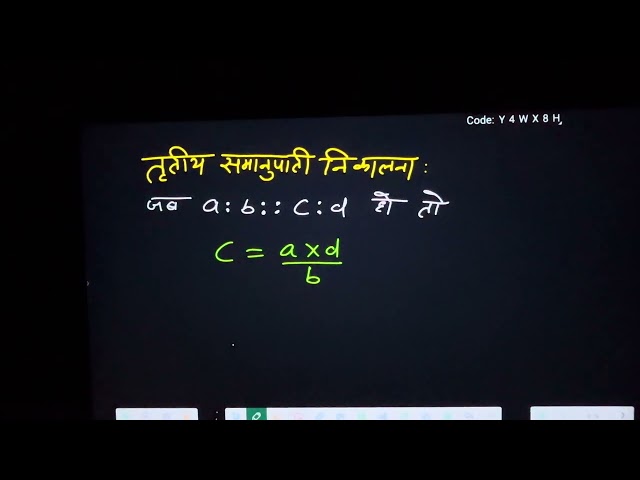 Code: Y 4 W X 8 H,
तृतीय समानुपाती निकालना :
जब a : b : : c : d हो तो
c = a x d
b